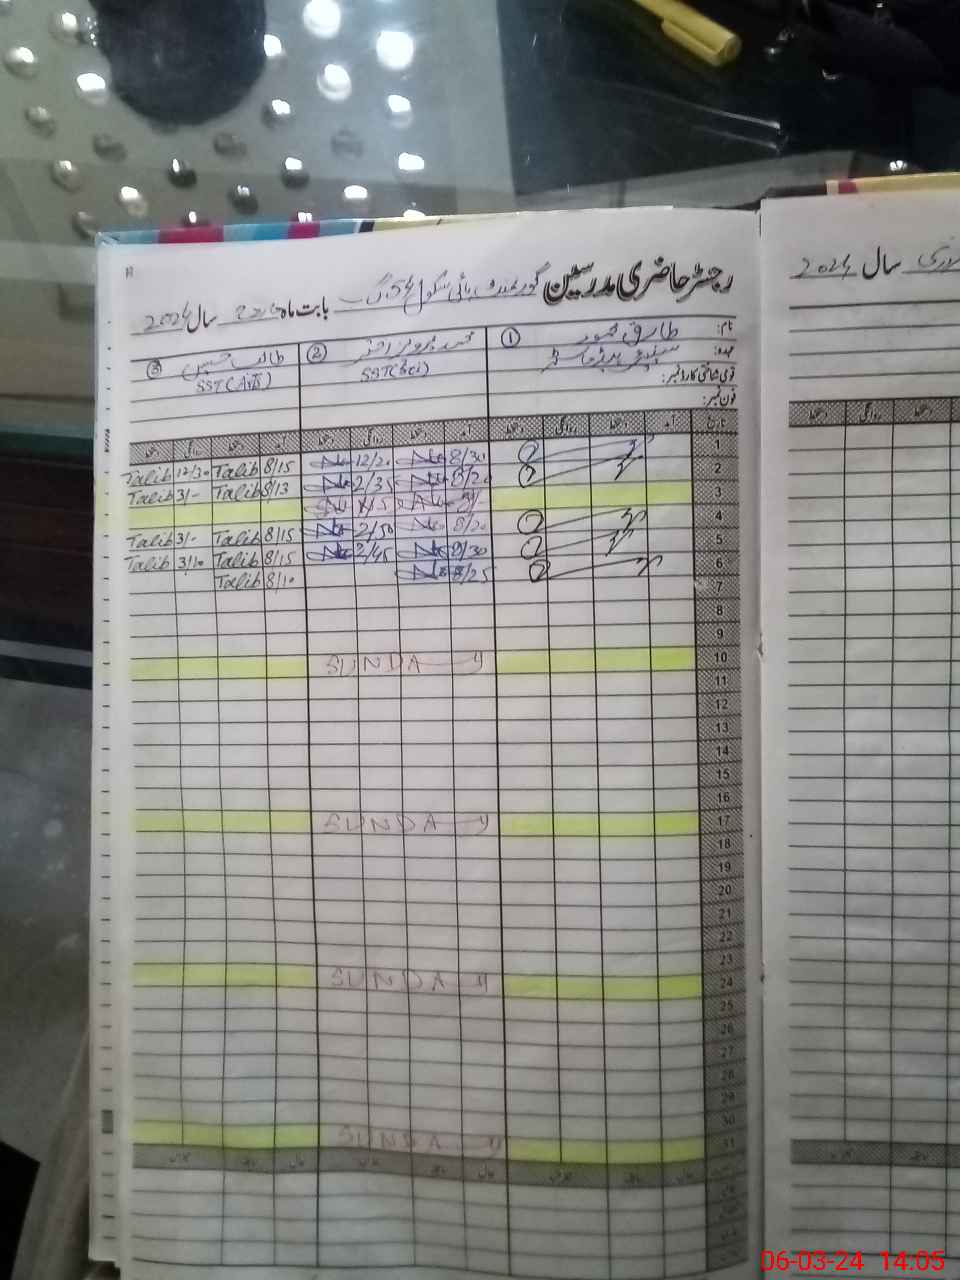 رجسٹر حاضری مدرسین گورنمنٹ ہائی سکول 54 گ ب بابت ماہ مارچ سال 2024
نام: ① طارق محمود ② محمد پرویز اختر ③ طالب حسین
عہدہ: سینئر ہیڈماسٹر SST(Sci) SST(Arts)
قومی شناختی کارڈ نمبر:
فون نمبر:
تاریخ آمد دستخط روانگی دستخط آمد دستخط روانگی دستخط آمد دستخط روانگی دستخط
1 8/30 12/20 8/15 Talib 12/30 Talib
2 8/20 2/35 8/13 Talib 3/- Talib
3
4 8/20 2/50 8/15 Talib 3/- Talib
5 8/30 2/45 8/15 Talib 3/10 Talib
6 8/25 8/10 Talib
7
8
9
10 SUNDAY
11
12
13
14
15
16
17 SUNDAY
18
19
20
21
22
23
24 SUNDAY
25
26
27
28
29
30
31 SUNDAY
سال 2024
06-03-24 14:05